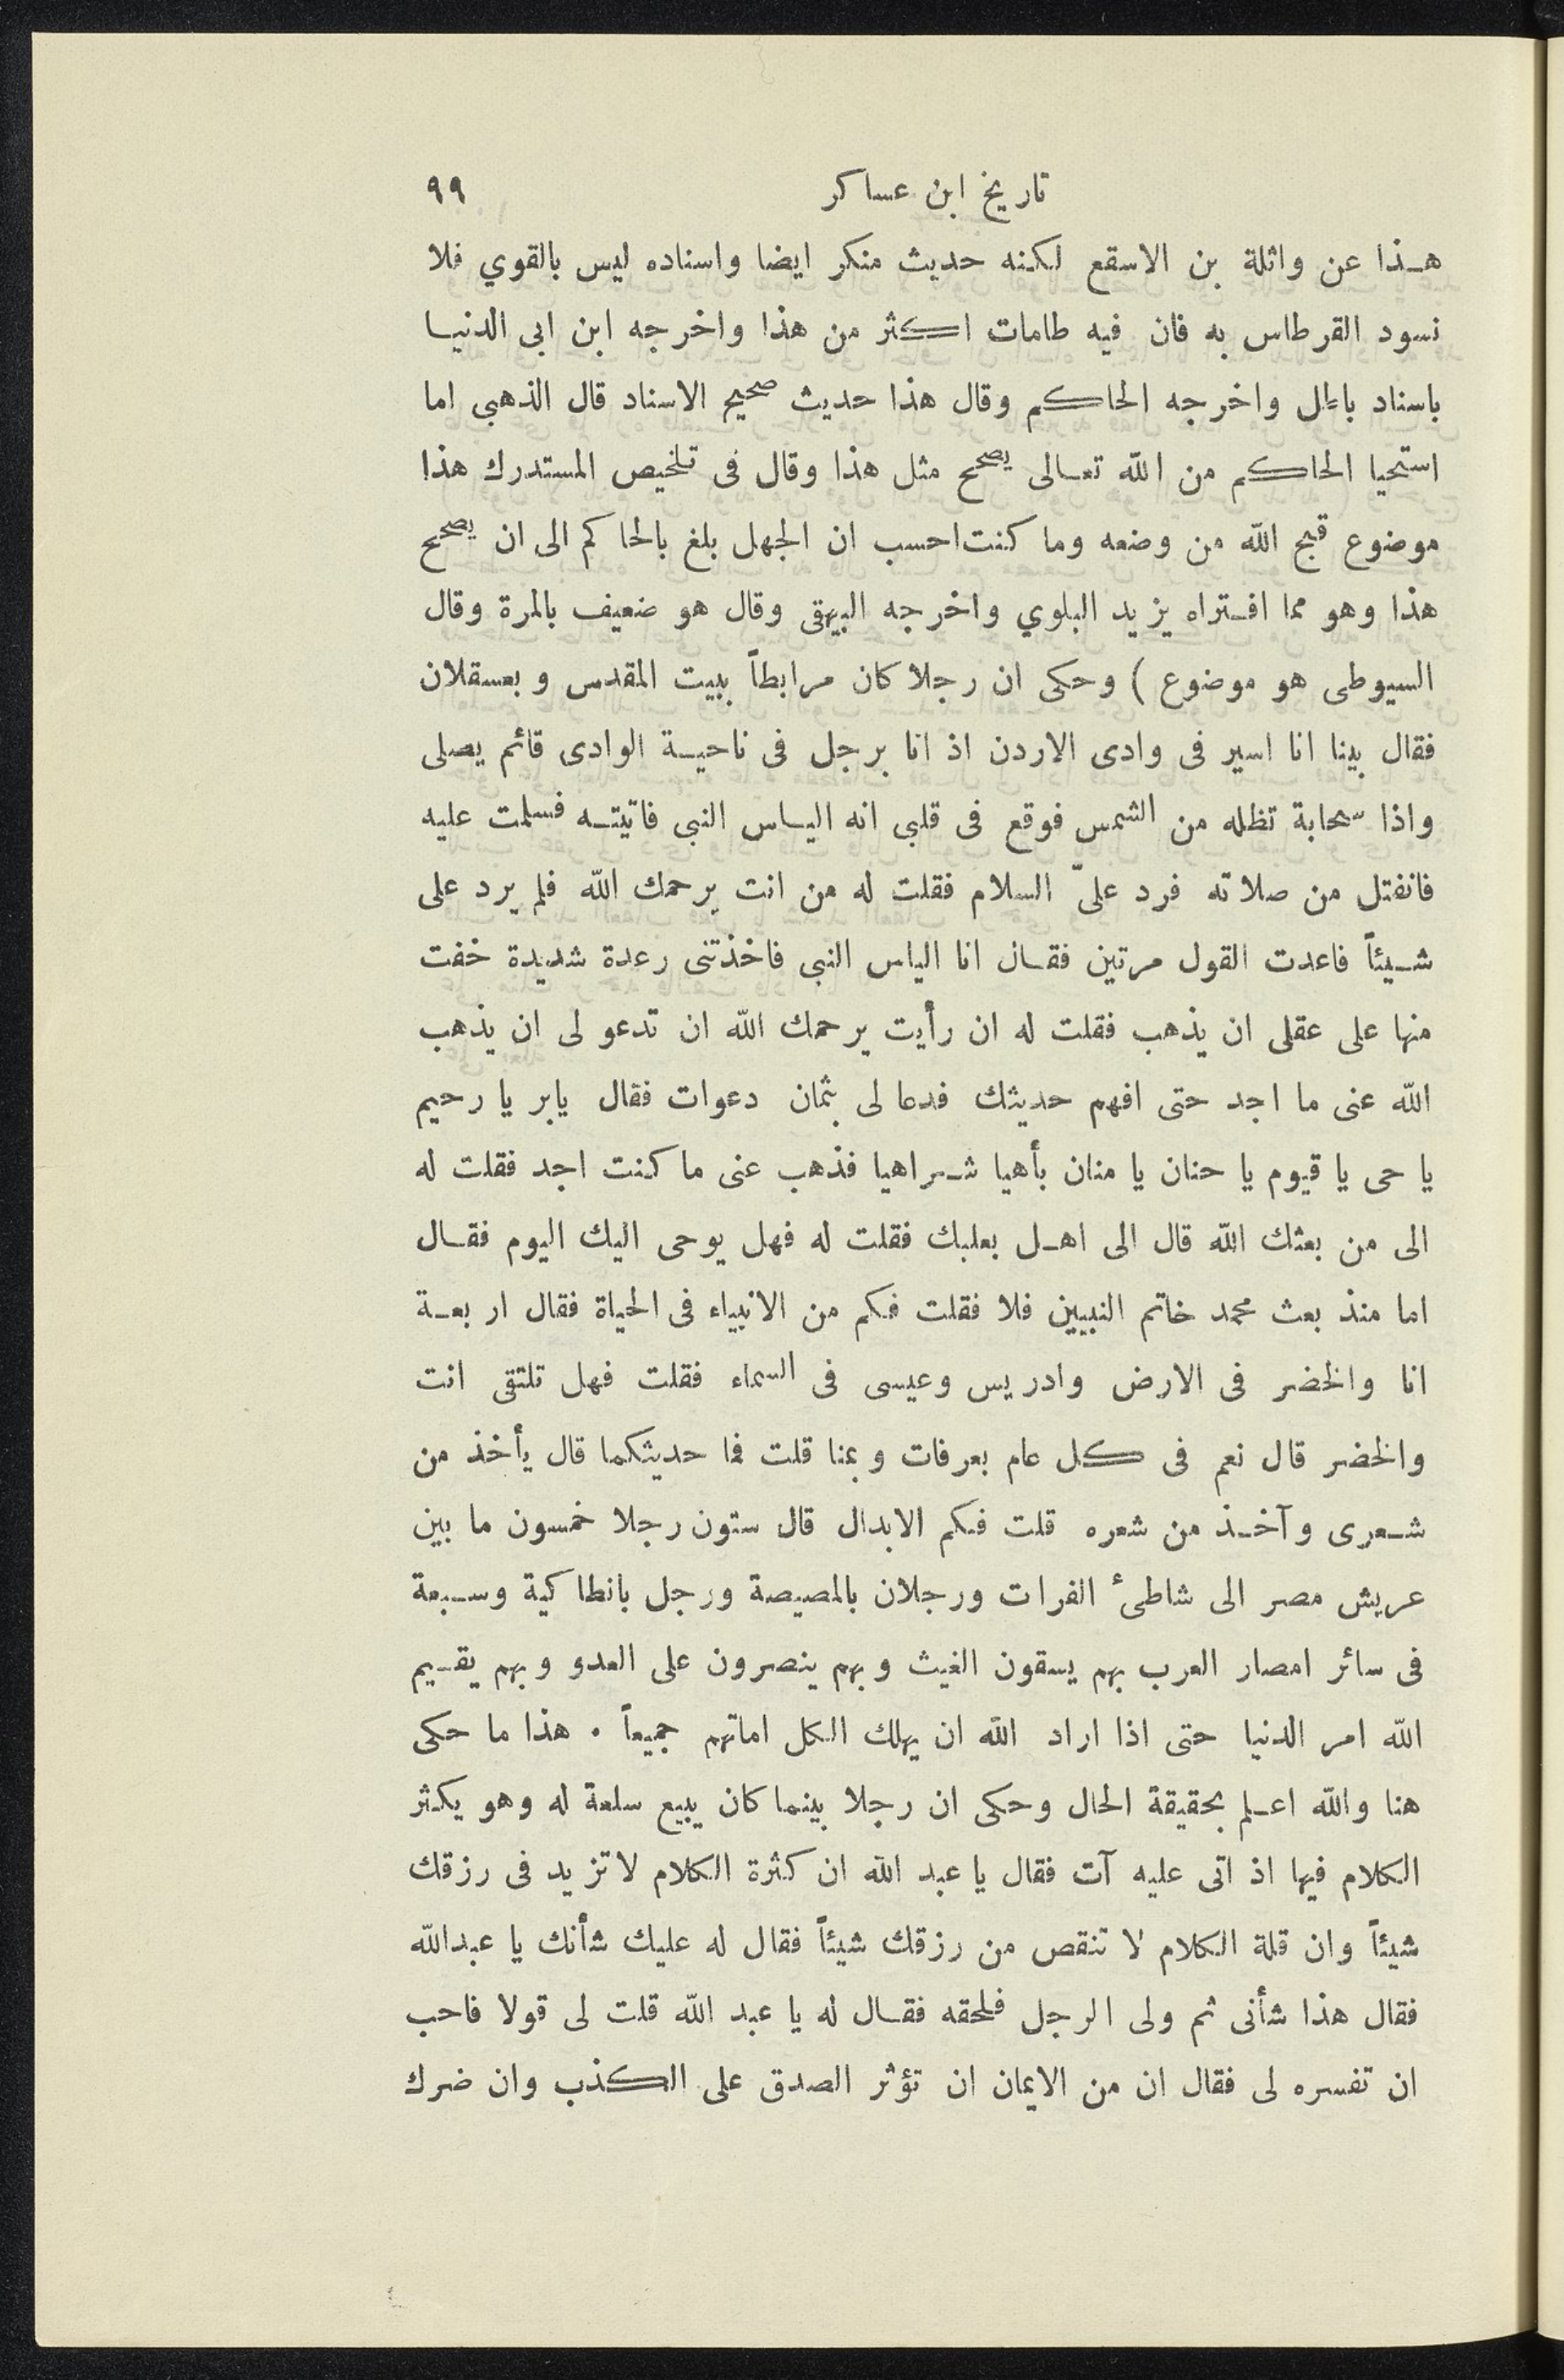 تاريخ ابن عساكر ٩٩
هـذا عن واثلة بن الاسقع لكنه حديث منكر ايضا واسناده ليس بالقوي فلا
نسود القرطاس به فان فيه طامات اكثر من هذا واخرجه ابن ابى الدنيا
باسناد باطل واخرجه الحاكم وقال هذا حديث صحيح الاسناد قال الذهبى اما
استحيا الحاكم من الله تعالى يصحح مثل هذا وقال فى تلخيص المستدرك هذا
موضوع قبح الله من وضعه وما كنت احسب ان الجهل بلغ بالحاكم الى ان يصحح
هذا وهو مما افتراه يزيد البلوي واخرجه البيهقى وقال هو ضعيف بالمرة وقال
السيوطى هو موضوع ) وحكى ان رجلا كان مرابطاً ببيت المقدس وبعسقلان
فقال بينا انا اسير فى وادى الاردن اذ انا برجل فى ناحية الوادى قائم يصلى
واذا سحابة تظله من الشمس فوقع فى قلبى انه الياس النبى فاتيته فسلمت عليه
فانفتل من صلاته فرد علىّ السلام فقلت له من انت يرحمك الله فلم يرد على
شيئاً فاعدت القول مرتين فقال انا الياس النبى فاخذتنى رعدة شديدة خفت
منها على عقلى ان يذهب فقلت له ان رأيت يرحمك الله ان تدعو لى ان يذهب
الله عنى ما اجد حتى افهم حديثك فدعا لى بثمان دعوات فقال يابر يا رحيم
يا حى يا قيوم يا حنان يا منان بأهيا شراهيا فذهب عنى ما كنت اجد فقلت له
الى من بعثك الله قال الى اهل بعلبك فقلت له فهل يوحى اليك اليوم فقال
اما منذ بعث محمد خاتم النبيين فلا فقلت فكم من الانبياء فى الحياة فقال اربعة
انا والخضر فى الارض وادريس وعيسى فى السماء فقلت فهل تلتقى انت
والخضر قال نعم فى كل عام بعرفات وبمنا قلت فما حديثكما قال يأخذ من
شعرى وآخذ من شعره قلت فكم الابدال قال ستون رجلا خمسون ما بين
عريش مصر الى شاطىء الفرات ورجلان بالمصيصة ورجل بانطاكية وسبعة
فى سائر امصار العرب بهم يسقون الغيث وبهم ينصرون على العدو وبهم يقيم
الله امر الدنيا حتى اذا اراد الله ان يهلك الكل اماتهم جميعاً . هذا ما حكى
هنا والله اعلم بحقيقة الحال وحكى ان رجلا بينما كان يبيع سلعة له وهو يكثر
الكلام فيها اذ اتى عليه آت فقال يا عبد الله ان كثرة الكلام لا تزيد فى رزقك
شيئاً وان قلة الكلام لا تنقص من رزقك شيئاً فقال له عليك شأنك يا عبدالله
فقال هذا شأنى ثم ولى الرجل فلحقه فقال له يا عبد الله قلت لى قولا فاحب
ان تفسره لى فقال ان من الايمان ان تؤثر الصدق على الكذب وان ضرك